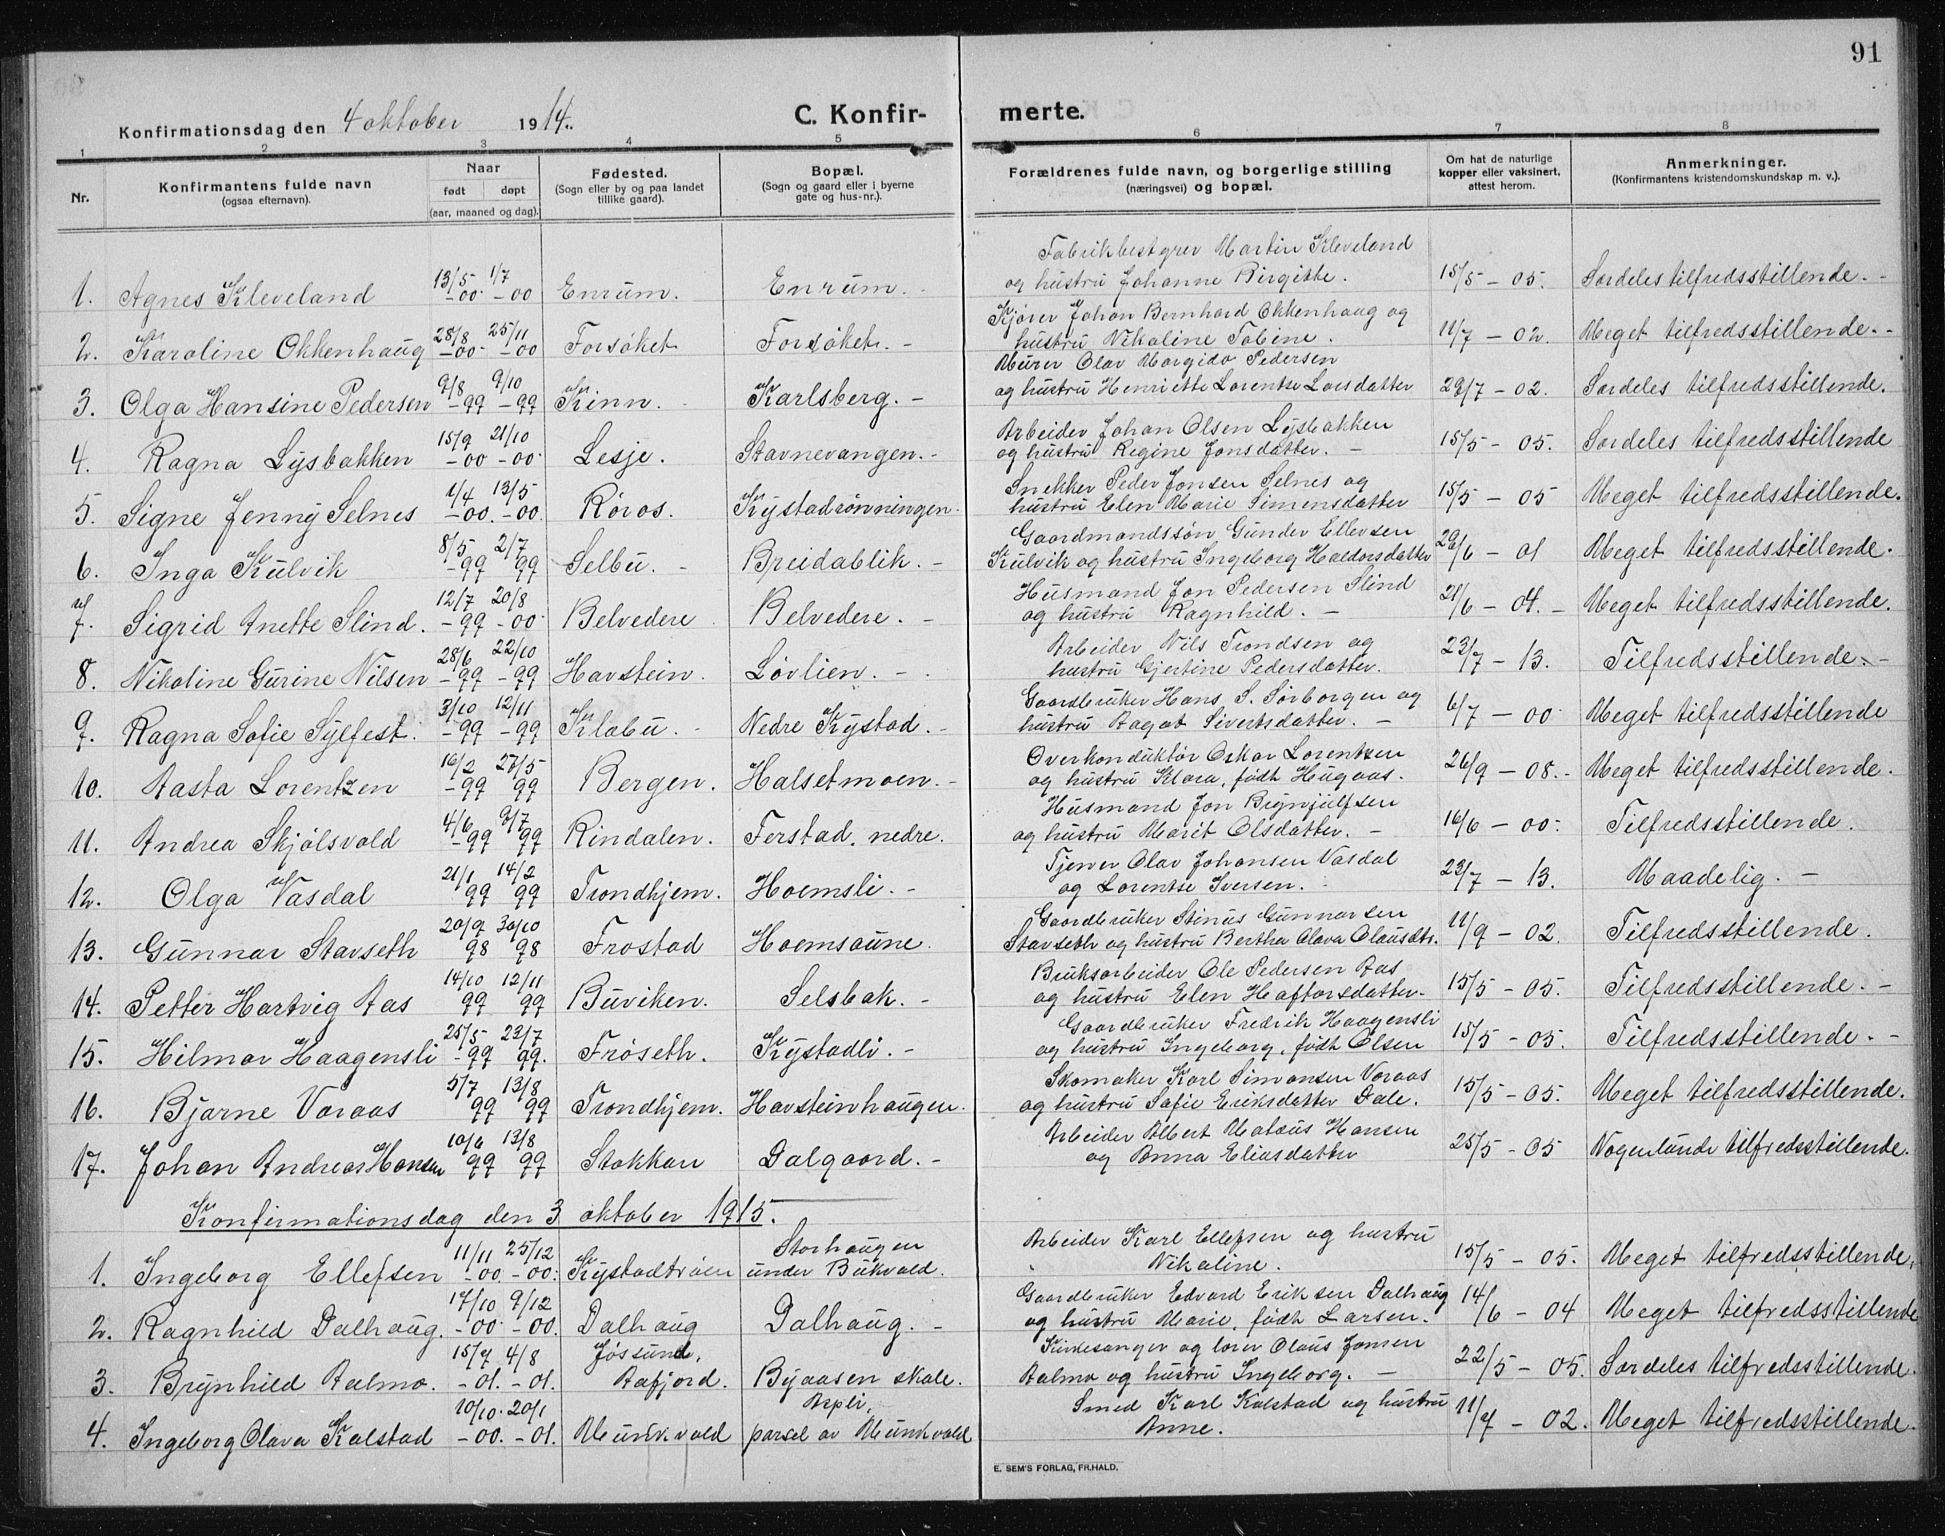 91
Konfirmationsdag den 4 oktober 1914. C. Konfirmerte.
1 2 3 4 5 6 7 8
Nr. Konfirmantens fulde navn (ogsaa efternavn). Naar født døpt (aar, maaned og dag). Fødested. (Sogn eller by og paa landet tillike gaard). Bopæl. (Sogn og gaard eller i byerne gate og hus-nr.). Forældrenes fulde navn, og borgerlige stilling (næringsvei) og bopæl. Om hat de naturlige kopper eller vaksinert, attest herom. Anmerkninger. (Konfirmantens kristendomskundskap m. v.).
1. Agnes Kleveland 13/5 -00. 1/7 -00 Enrum. Enrum. - Fabrikbestyrer Martin Kleveland og hustru Johanne Birgitte. 15/5 - 05. Særdeles tilfredsstillende. -
2. Karoline Okkenhaug 28/8 -00. 25/11 -00 Forsøket Forsøket. - Kjører Johan Bernhard Okkenhaug og hustru Nikoline Tobine. 11/7 - 02. Meget tilfredsstillende. -
3. Olga Hansine Pedersen 9/8 -99 9/10 -99 Kinn. Karlsberg. - Murer Olav Margido Pedersen og hustru Henriette Lorentse Larsdatter 29/7 - 02. Særdeles tilfredsstillende.
4. Ragna Lysbakken 15/9 -00 21/10 -00. Lesje. Stavnevangen. - Arbeider Johan Olsen Lysbakken og hustru Regine Jonsdatter. - 15/5 - 05. Særdeles tilfredsstillende
5. Signe Jenny Selnes 1/4 -00. 13/5 -00. Røros. Kystadrønningen. Snekker Peder Jonsen Selnes og hustru Elen Marie Simensdatter 15/5 - 05 Meget tilfredsstillende.
6. Inga Kulvik 8/5 -99 2/7 99 Selbu. - Breidablik. - Gaardmandssøn Gunder Ellevsen Kulvik og hustru Ingeborg Haldorsdatter 29/6 - 01 Meget tilfredsstillende.
7. Sigrid Anette Slind. 12/7 -99 20/8 -00. Belvedere Belvedere. - Husmand Jon Pedersen Slind og hustru Ragnhild. - 21/6 - 04. - Meget tilfredsstillende.
8. Nikoline Gurine Nilsen 28/6 -99 22/10 -99 Havstein. Løvlien. - Arbeider Nils Trondsen og hustru Gjertine Pedersdatter. 23/7 - 13. Tilfredsstillende. -
9. Ragna Sofie Sylfest. 3/10 -99 12/11 -99 Klæbu. - Nedre Kystad. - Gaardbruker Hans S. Sørborgen og hustru Aagot Sivertsdatter. - 6/7 - 00 Meget tilfredsstillende
10. Aasta Lorentzen 16/2 -99 27/5 99 Bergen. Halsetmoen. - Overkonduktør Oskar Lorentzen og hustru Klara, født Hugaas. 26/9 - 08. - Meget tilfredsstillende.
11. Andrea Skjølsvold 4/6 -99 9/7 99 Rindalen. Ferstad, nedre. Husmand Jon Brynjulfsen og hustru Marit Olsdatter. - 16/6 - 00. Tilfredsstillende.
12. Olga Vasdal 21/1 99 14/2 99 Trondhjem. Hoemsli. - Tjener Olav Johansen Vasdal og Lorentse Iversen. 23/7 - 13. Maadelig. -
13. Gunnar Stavseth 20/9 98 30/10 98 Frostad Hoemsaune. Gaardbruker Stinus Gunnarsen Stavseth og hustru Bertha Olava Olausdtr. 11/9 - 02. Tilfredsstillende.
14. Petter Hartvig Aas 14/10 99 12/11 99 Buviken. Selsbak. - Bruksarbeider Ole Pedersen Aas og hustru Elen Haftorsdatter. 15/5 - 05. Tilfredsstillende. -
15. Hilmar Haagensli 25/5 -99 23/7 99. Frøseth. Kystadli. - Gaardbruker Fredrik Haagensli og hustru Ingeborg, født Olsen 15/5 - 05. Tilfredsstillende. -
16. Bjarne Voraas 5/7 99 13/8 99 Trondhjem. Havsteinhaugen. Skomaker Karl Simonsen Voraas og hustru Sofie Eriksdatter Dale. 15/5 - 05. Meget tilfredsstillende.
17. Johan Andreas Hansen 10/6 99 13/8 99 Stokkan Dalgaard. - Arbeider Albert Mateus Hansen og Anna Eliasdatter 25/5 - 05 Nogenlunde tilfredsstillende.
Konfirmationsdag den 3 oktober 1915.
1. Ingeborg Ellefsen 11/11 -00. 25/12 -00. Kystadtrøen Storhaugen under Bukvold. Arbeider Karl Ellefsen og hustru Nikoline. 15/5 - 05. Meget tilfredsstillende.
2. Ragnhild Dalhaug. 17/10 -00. 9/12 -00. Dalhaug Dalhaug. - Gaardbruker Edvard Eriksen Dalhaug og hustru Marie, født Larsen. 14/6 - 04 Meget tilfredsstillende
3. Brynhild Aalmo. 15/7 -01. 4/8 -01. Jøssund, Aafjord. Byaasen skole. Kirkesanger og lærer Olaus Jonsen Aalmo og hustru Ingeborg. - 22/5 - 05. Særdeles tilfredsstillende.
4. Ingeborg Olava Kolstad 10/10. -00. 20/1 -01. Munkvold Aspli, parsel av Munkvold Smed Karl Kolstad og hustru Anne. 11/7 - 02. Meget tilfredsstillende.
E. SEM'S FORLAG, FR.HALD.